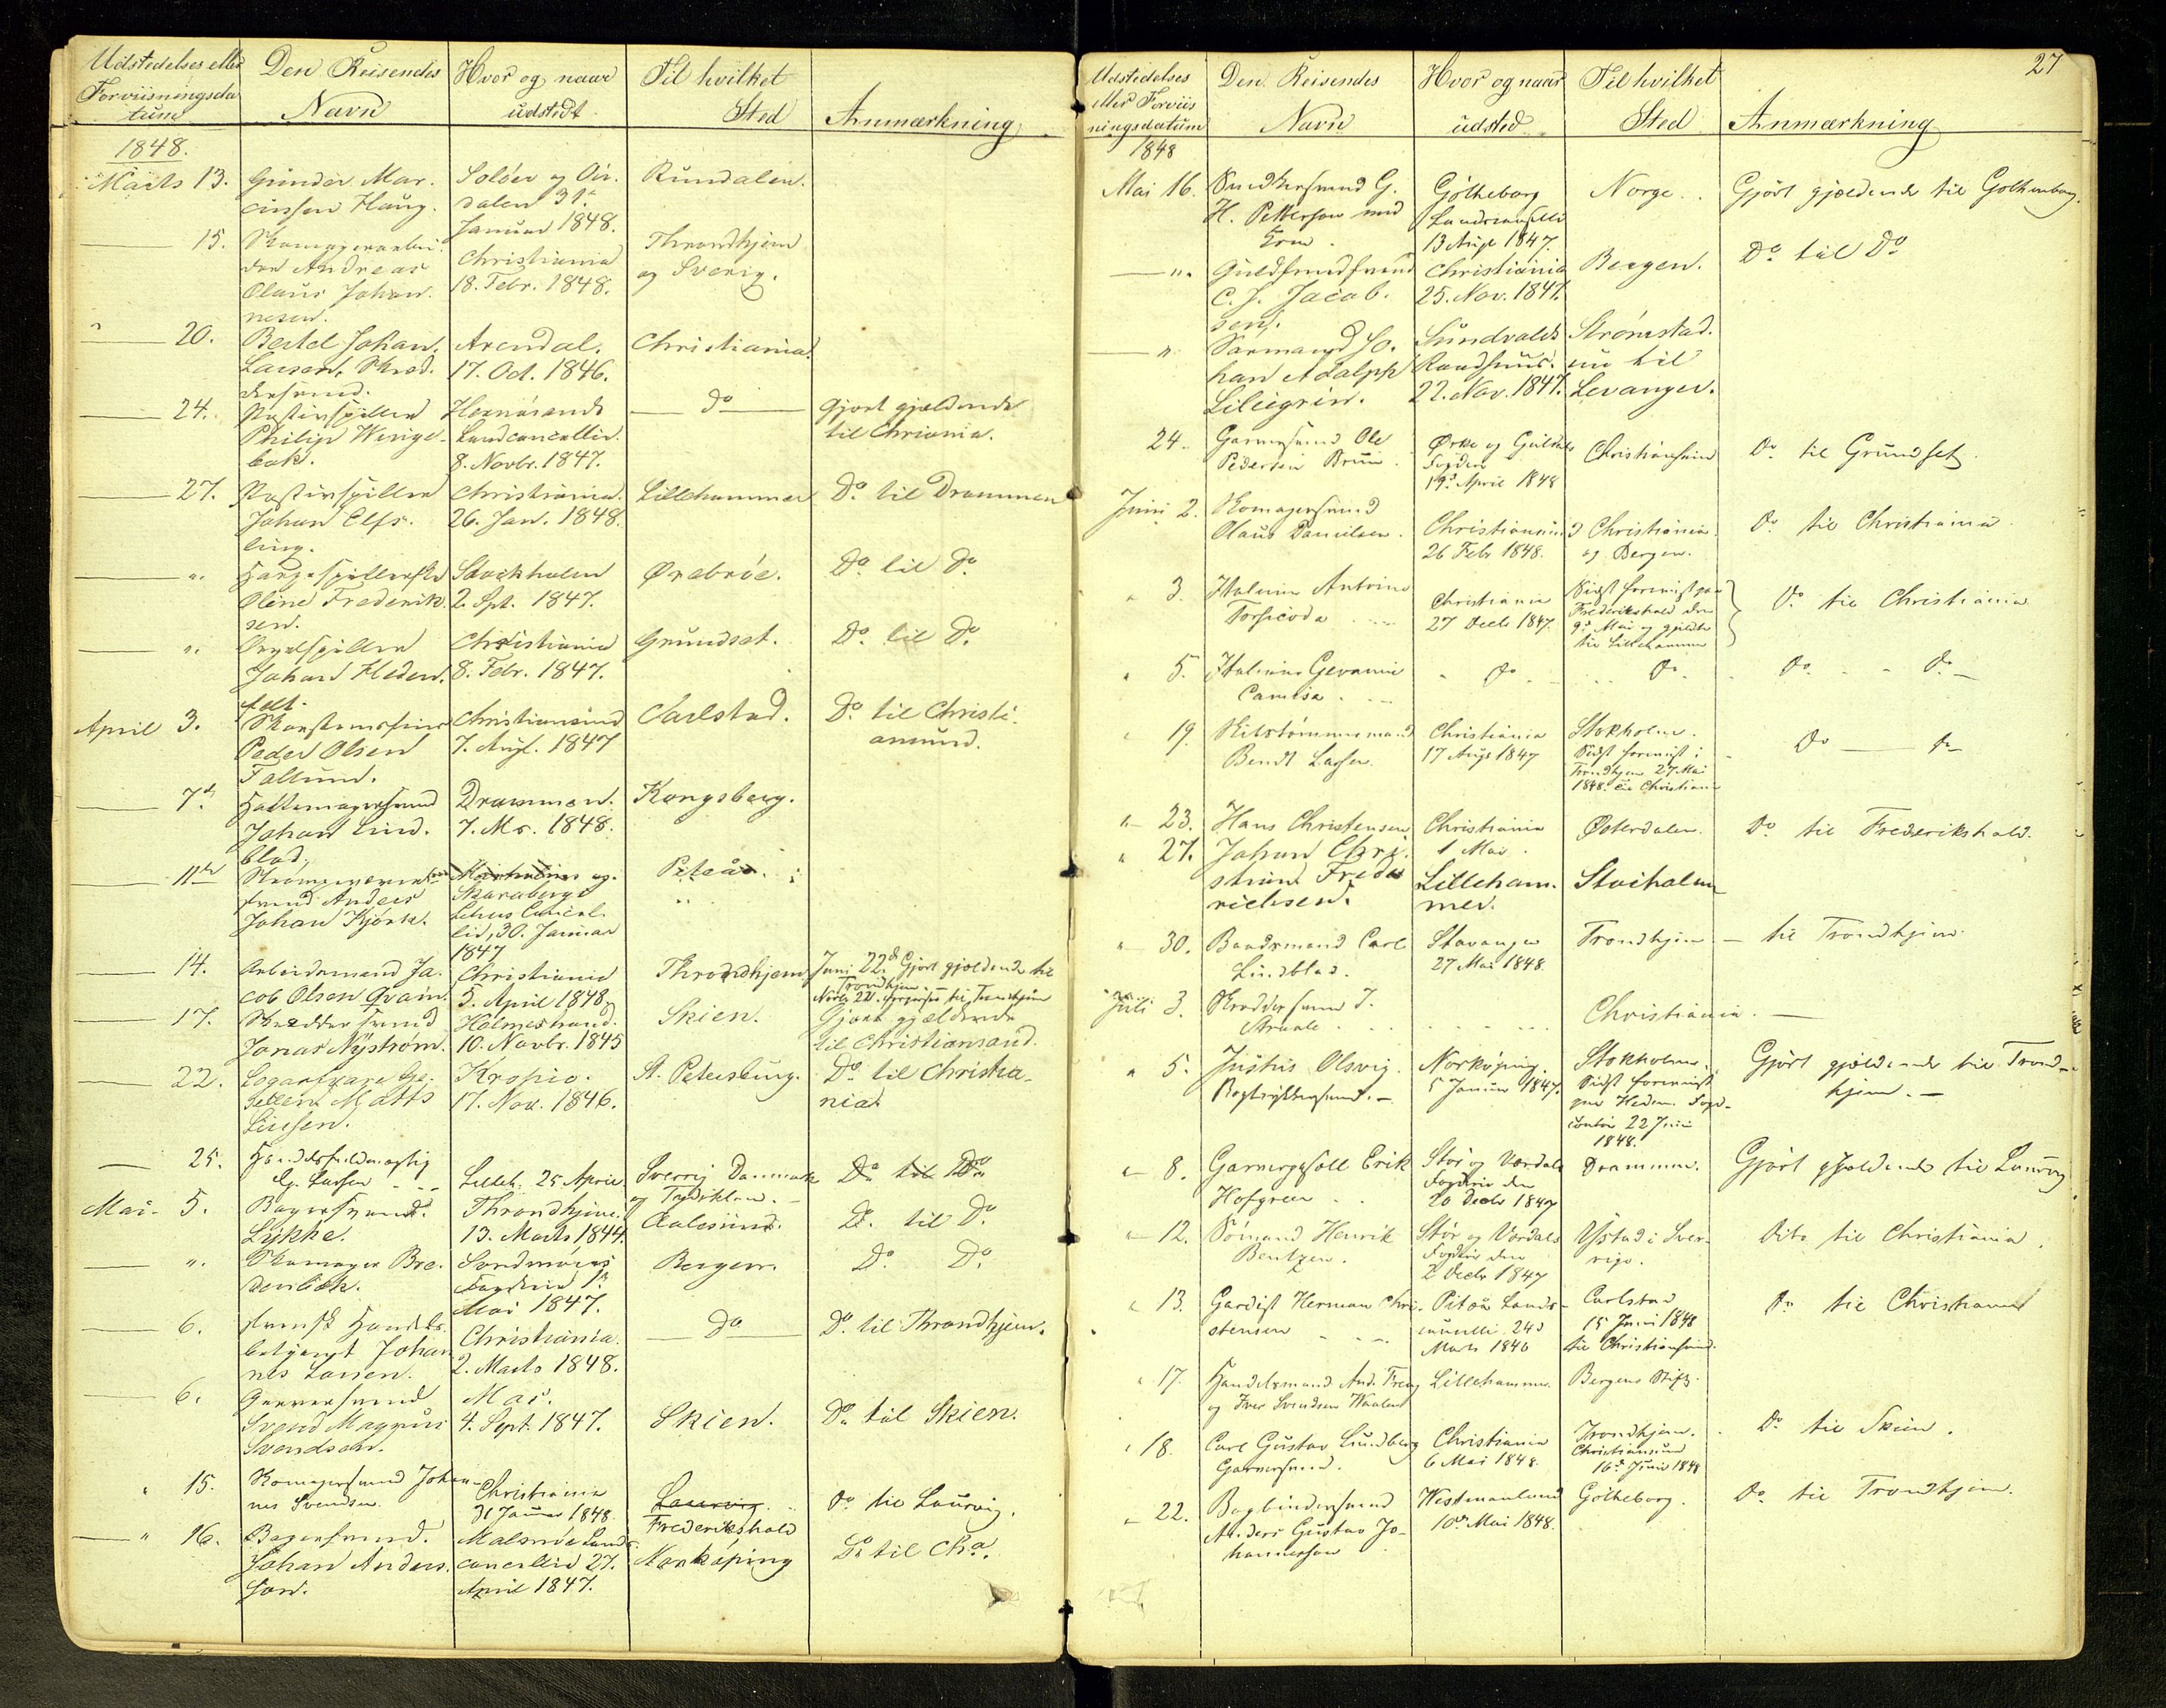 Udstedelses eller
Forviisningsda
tum
Den Reisendes
Navn
Hvor og naar
udstedt
Til hvilket
Sted
Anmærkning
1848.
Marts 13.
Gunder Mar.
Haug.
Solöer og
dalen 31.
Januar 1848.
Rundalen.
15.
Andreas
Olaus Johan.
nesen.
Christiania
18. Febr. 1848.
Throndhjem
og Sverig.
20.
Bertel Johan.
Larsen, Skræd.
dersvend.
Arendal.
17. Oct. 1846.
Christiania.
24.
Philip
Hernösands
Landcancellie.
8. Novbr. 1847.
Do
Gjort gjældende
til Chriania.
27.
Johan
Christiania.
26. Jan. 1848.
Lillehammer
Do til Drammen
"
Harpespillerske
Oline Frederik.
sen.
Stockholm
2. Spt. 1847.
Örebröe.
Do til Do
"
Orgelspiller
Johan Heden.
felt.
Christiania
8. Febr. 1847.
Grundset.
Do til Do
April 3.
Peder Olsen
Christiansund
7. Aug. 1847
Carlstad.
Do til Christi.
ansund.
7de
Hattemagersvend
Johan Lind.
blad.
Drammen.
7. Mr. 1848.
Kongsberg.
11te
svend Anders
Johan
Skaraborgs
30. Januar
1847
Piteå.
14.
Arbeidsmand Ja.
cob Olsen Qvam.
Christiania
5. April 1848
Throndhjem
Juni 22de Gjort gjældende til
Trondhjem
17.
Skræddersvend
Jonas Nyström.
Holmestrand.
10. Novbr. 1845
Skien.
Gjort gjældende
til Christiansand.
22.
Matts
17. Nov. 1846.
St. Petersburg.
Do til Christia.
nia.
25.
Handelsfuldmægtig
Larsen
Lilleh. 25 April
Sverrig Danmark
og Tydskland.
Do til Do
Mai 5.
Bagersvend.
Lykke.
Throndhjem.
13. Marts 1844.
Aalesund.
Do til Do
"
Skomager Bre.
Søndmøres
Fogderie 1.
Mai 1847.
Bergen.
Do Do
6.
svensk Handels.
betjent Johan
nes
Christiania.
2. Marts 1848.
Do
Do til Throndhjem.
6.
Garversvend
Svend Magnus
Svendsen.
4. Sept. 1847.
Skien.
Do til Skien.
" 15.
Skomagersvend Johan-
nes Svendsen.
Christiania
31 Januar 1848.
Laurvig.
Frederikshald
Do til Laurvig.
" 16.
Bagersvend.
Johan Anders.
son.
Malmöe Land
cancellie 27.
April 1847.
Norköping
Do til Cha.
27
Udstedelses
eller Forviis
ningsdatum
Den Reisendes
Navn
Hvor og naar
udsted
Til hvilket
Sted
Anmærkning
1848
Mai 16.
Snedkersvend G.
H. Pettersson med
Kone.
Götheborg
Landscancellie
13 Aug 1847.
Norge.
Gjört gjeldende til Gothenborg.
"
Guldsmedsvend
C. J. Jacob.
sen.
Christiania
25. Nov. 1847.
Bergen.
Do til Do
"
Sømand Jo.
han Adolph
Liliegrin.
Sundvalds
Raadhuus.
22. Nov. 1847.
Strømstad.
nu til
Levanger.
24.
Garversvend Ole
Pedersen Bruun.
Ørke og Guldals
Fogderi
19. April 1848
Christiansund
Do til Grundset.
Juni 2.
Skomagersvend
Olaus Danielsen.
Christiansund
26 Febr 1848.
Christiania
og Bergen.
Do til Christiania.
" 3.
Italiener Antonio
Christiania
27 Decb 1847.
Sidst foreviist paa
Frederikshald den
9de Mai og gjeldte
til Lillehammer
Do til Christiania
" 5.
Italiener Gevanni
Do
Do
Do Do
" 19.
Bendt
Christiania
17 Aug 1847
Stokholm.
Sidst foreviist i
Trondhjem 27 Mai
1848 til Christiania
Do Do
" 23.
Hans Christensen
Christiania
1 Mai.
Østerdalen.
Do til Frederikshald.
" 27.
Johan Chri.
stian Frede
richsen.
Lilleham.
mer.
Stockholm
" 30.
Baadsmand Carl
Lindblad.
Stavanger
27 Mai 1848.
Trondhjem
til Trondhjem.
Juli 3.
Skræddersvend J.
Christiania.
" 5.
Justus Olsvig.
Bogtrykkersvend.
Norköping.
5 Januar 1847.
Stokholm.
Sidst foreviist
paa Hedem. Fogd-
contoir 22 Juni
1848.
Gjört gjeldende til Trond-
hjem.
" 8.
Garvergesell Erik
Hofgren
Stör og Værdals
Fogderie den
20 Decbr 1847
Drammen.
Gjört gjeldende til Laurvig
" 12.
Sömand Henrik
Bentzen.
Stör og Værdals
Fogderie den
2 Decbr 1847
Ystad i Sver-
rige.
Dito til Christiania.
" 13.
Gardist Herman Chri-
stensen
Piteå Lands-
cancelli 24
Marts 1846
Carlstad
15 Juni 1848
til Christiansund.
Do til Christiania
" 17.
Handelsmand And.
og Iver Svendsen
Lillehammer.
Bergens Stift.
" 18.
Carl Gustav Lundberg
Garversvend.
Christiania
6 Mai 1848.
Trondhjem.
Christiansund
16de Juni 1848
Do til Skien.
" 22.
Bogbindersvend
Anders Gustav Jo-
hannesson
Westmanland
10de Mai 1848.
Götheborg.
Do til Trondhjem.